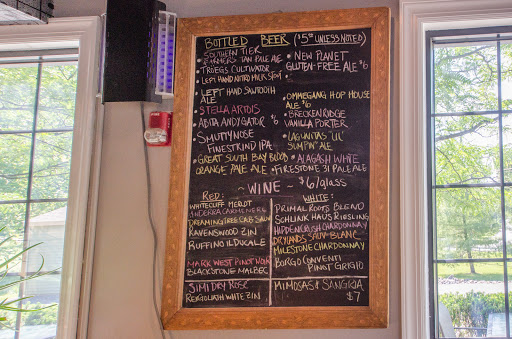 BOTTLED BEER ($5 UNLESS NOTED)
SOUTHERN TIER
FARMERS TAN PALE ALE
TROEGS CULTIVATOR
LEFT HAND NITRO MILK STOUT
LEFT HAND SAWTOOTH
ALE
STELLA ARTOIS
ABITA ANDYGATOR $6
SMUTTYNOSE
FINESTKIND IPA
GREAT SOUTH BAY BLOOD
ORANGE PALE ALE
NEW PLANET
GLUTEN-FREE ALE $6
OMMEGANG HOP HOUSE
ALE $6
BRECKENRIDGE
VANILLA PORTER
LAGUNITAS "LIL'
SUMPIN' ALE
ALAGASH WHITE
FIRESTONE 31 PALE ALE
~ WINE ~ $6/glass
RED:
WHITECLIFF MERLOT
CARMENERE
DREAMING TREE CAB SAUV
RAVENSWOOD ZIN
RUFFINO IL DUCALE
MARK WEST PINOT NOIR
BLACKSTONE MALBEC
SIMI DRY ROSE
ZIN
WHITE:
PRIMAL ROOTS BLEND
SCHLINK HAUS RIESLING
HIDDEN CRUSH CHARDONNAY
DRYLANDS SAUV BLANC
MILESTONE CHARDONNAY
BORGO CONVENTI
PINOT GRIGIO
MIMOSAS & SANGRIA
$7